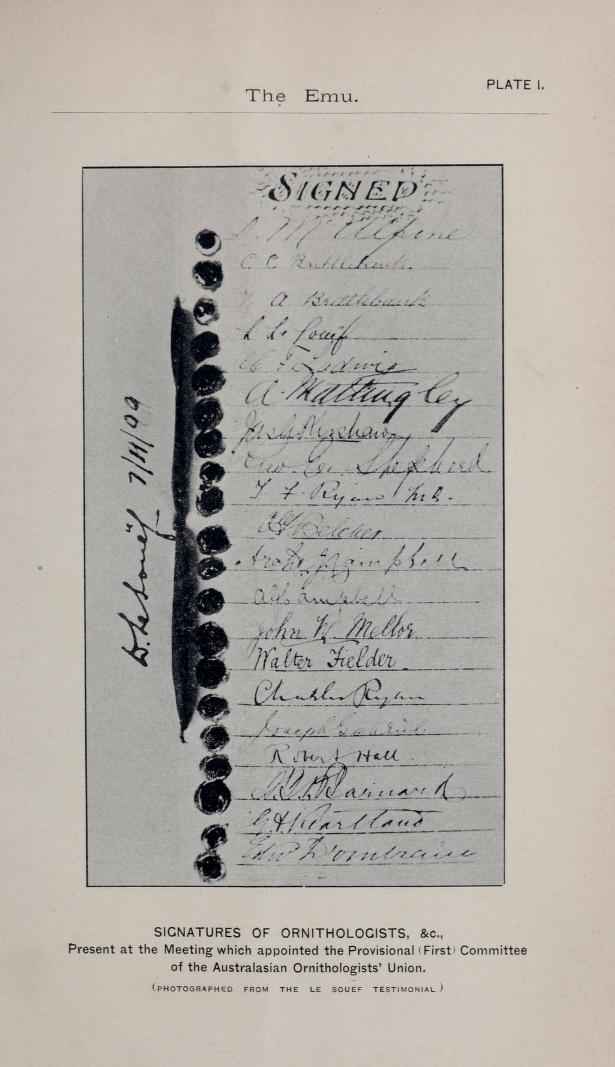 PLATE I.
The Emu.
SIGNED
D. McAlpine
C C Brittlebank.
A Brittlebank
L Le Souëf
A. Mattingley
Jas A Kershaw
Geo. Shepherd
T. F. Ryan
Belcher
Campbell
A Campbell
John W. Mellor
Walter Fielder
Charles Ryan
Joseph Gabriel
Robert Hall
Barnard
G. A. Keartland
Dombrain
D. Le Souëf 7/11/99
SIGNATURES OF ORNITHOLOGISTS, &c.,
Present at the Meeting which appointed the Provisional (First) Committee
of the Australasian Ornithologists' Union.
(PHOTOGRAPHED FROM THE LE SOUEF TESTIMONIAL.)